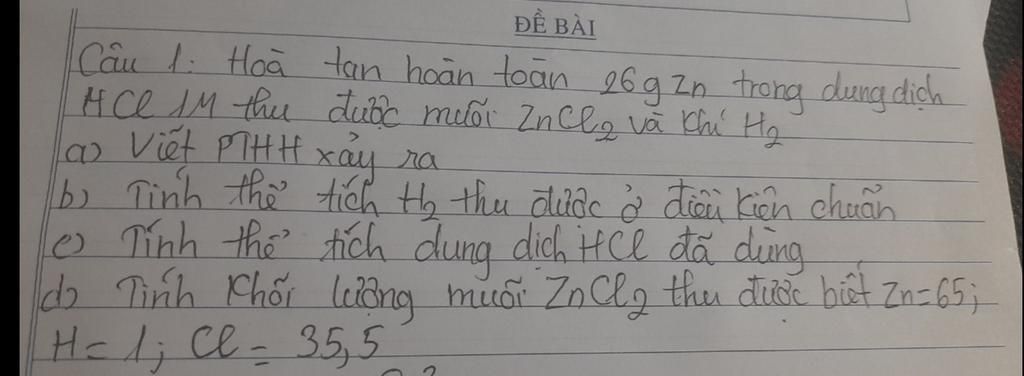 ĐỀ BÀI
Câu 1: Hoà tan hoàn toàn 26g Zn trong dung dịch
HCl 1M thu được muối ZnCl2 và khí H2
a) Viết PTHH xảy ra
b) Tính thể tích H2 thu được ở điều kiện chuẩn
c) Tính thể tích dung dịch HCl đã dùng
d) Tính khối lượng muối ZnCl2 thu được biết Zn=65;
H=1; Cl=35,5